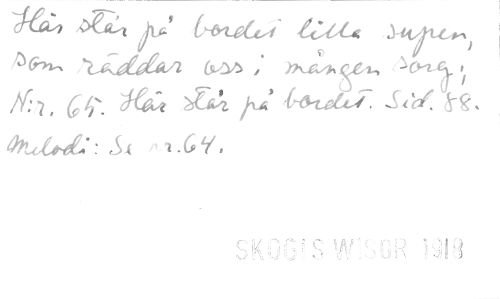 Här står på bordet lilla supen,
som räddar oss i mången sorg;
N:r. 65. Här står på bordet. Sid. 88.
Melodi: Se nr. 64.
SKOGIS WISOR 1918